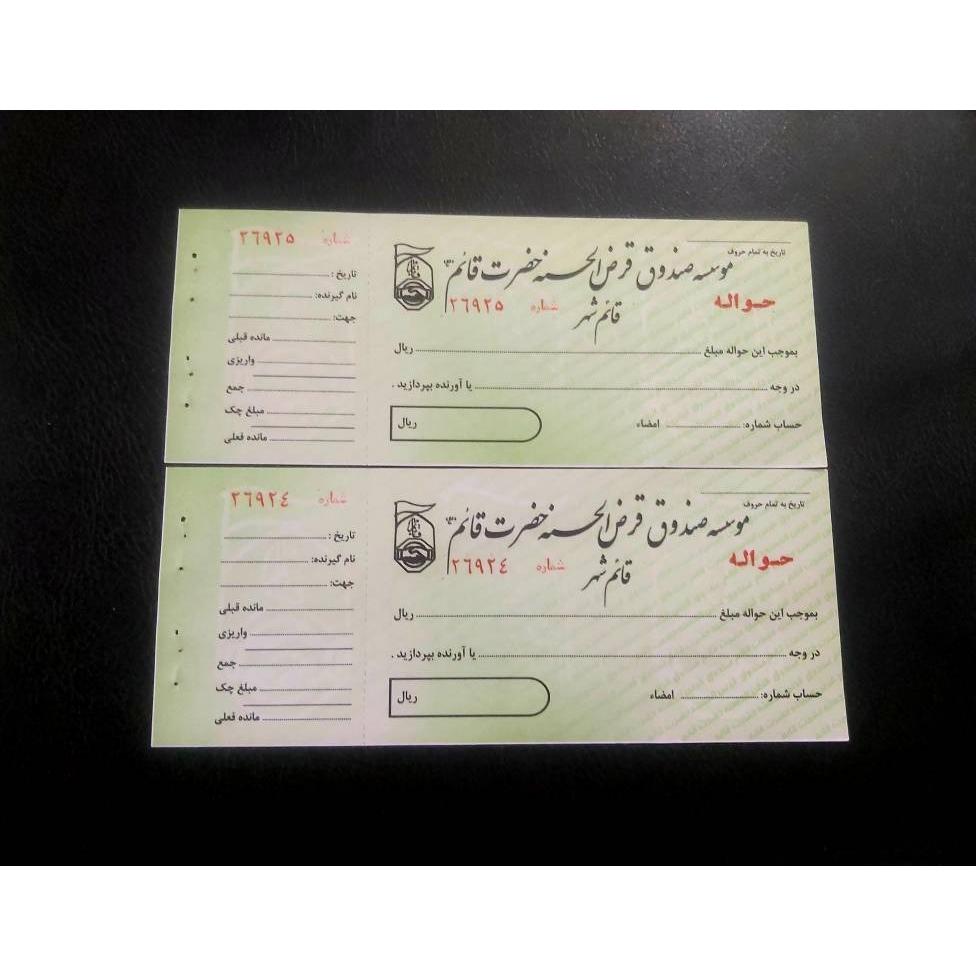 تاریخ به تمام حروف
موسسه صندوق قرض الحسنه حضرت قائم
قائم شهر
حواله
شماره ٢٦٩٢٥
بموجب این حواله مبلغ ریال
در وجه یا آورنده بپردازید .
حساب شماره: امضاء
ریال
شماره ٢٦٩٢٥
تاریخ :
نام گیرنده:
جهت:
مانده قبلی
واریزی
جمع
مبلغ چک
مانده فعلی
تاریخ به تمام حروف
موسسه صندوق قرض الحسنه حضرت قائم
قائم شهر
حواله
شماره ٢٦٩٢٤
بموجب این حواله مبلغ ریال
در وجه یا آورنده بپردازید .
حساب شماره: امضاء
ریال
شماره ٢٦٩٢٤
تاریخ :
نام گیرنده:
جهت:
مانده قبلی
واریزی
جمع
مبلغ چک
مانده فعلی